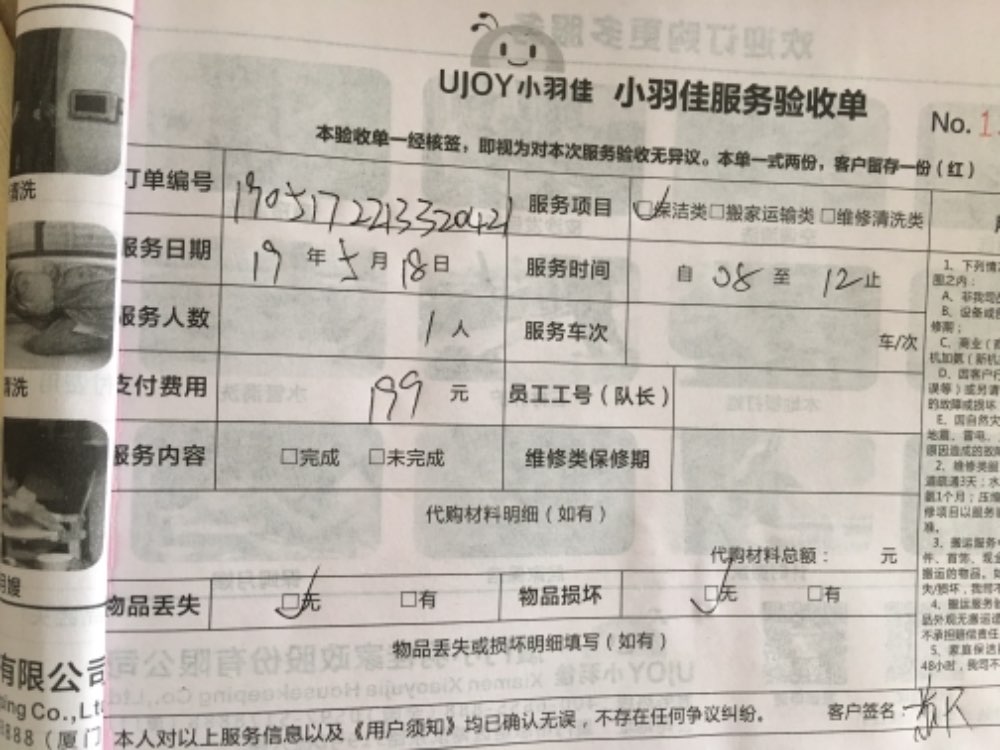 UJOY小羽佳 小羽佳服务验收单
No. 1
本验收单一经核签，即视为对本次服务验收无异议。本单一式两份，客户留存一份（红）
订单编号 190517221332042 服务项目 □保洁类□搬家运输类 □维修清洗类
服务日期 19 年 5 月 18 日 服务时间 自 08 至 12 止
服务人数 1 人 服务车次 车/次
支付费用 199 元 员工工号（队长）
服务内容 □完成 □未完成 维修类保修期
代购材料明细（如有）
代购材料总额： 元
物品丢失 □无 □有 物品损坏 □无 □有
物品丢失或损坏明细填写（如有）
本人对以上服务信息以及《用户须知》均已确认无误，不存在任何争议纠纷。 客户签名：
清洗
清洗
月嫂
有限公司
ping Co.,Lt
8888（厦门
1、下列情
围之内：
A、非我司
B、设备或
修期；
C、商业（
机加氨（新机
D、因客户行
误等）或另请
的故障或损坏
E、因自然灾
地震、雷电、
原因造成的故
2、维修类服
道疏通3天；水
氨1个月；压缩
修项目以服务
准。
3、搬运服务
件、首饰、现
搬运的物品，
失/损坏，我司不
4、搬运服务
品外观无搬运
不承担赔偿责任
5、家庭保洁
48小时，我司不